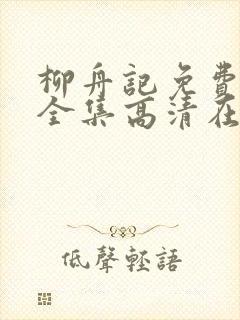 柳舟記免費
全集高清在
低聲輕語